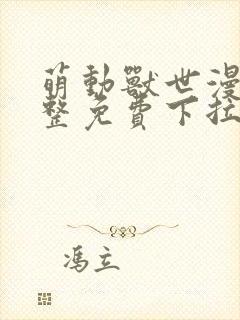 萌動獸世漫
整免費下拉
馮立